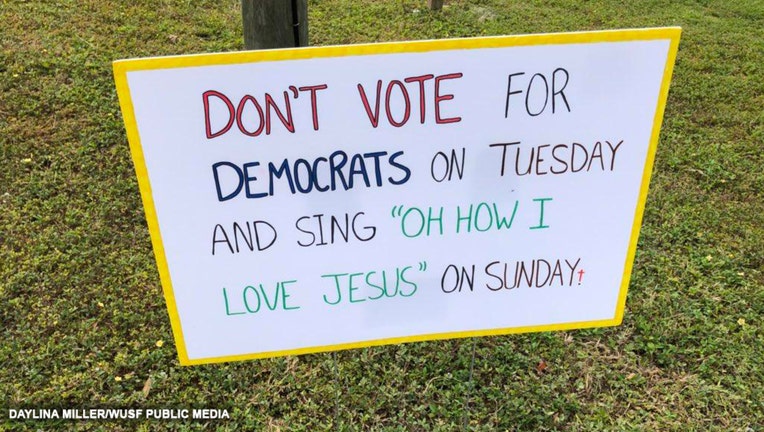 DON'T VOTE FOR
DEMOCRATS ON TUESDAY
AND SING "OH HOW I
LOVE JESUS" ON SUNDAY.
DAYLINA MILLER/WUSF PUBLIC MEDIA